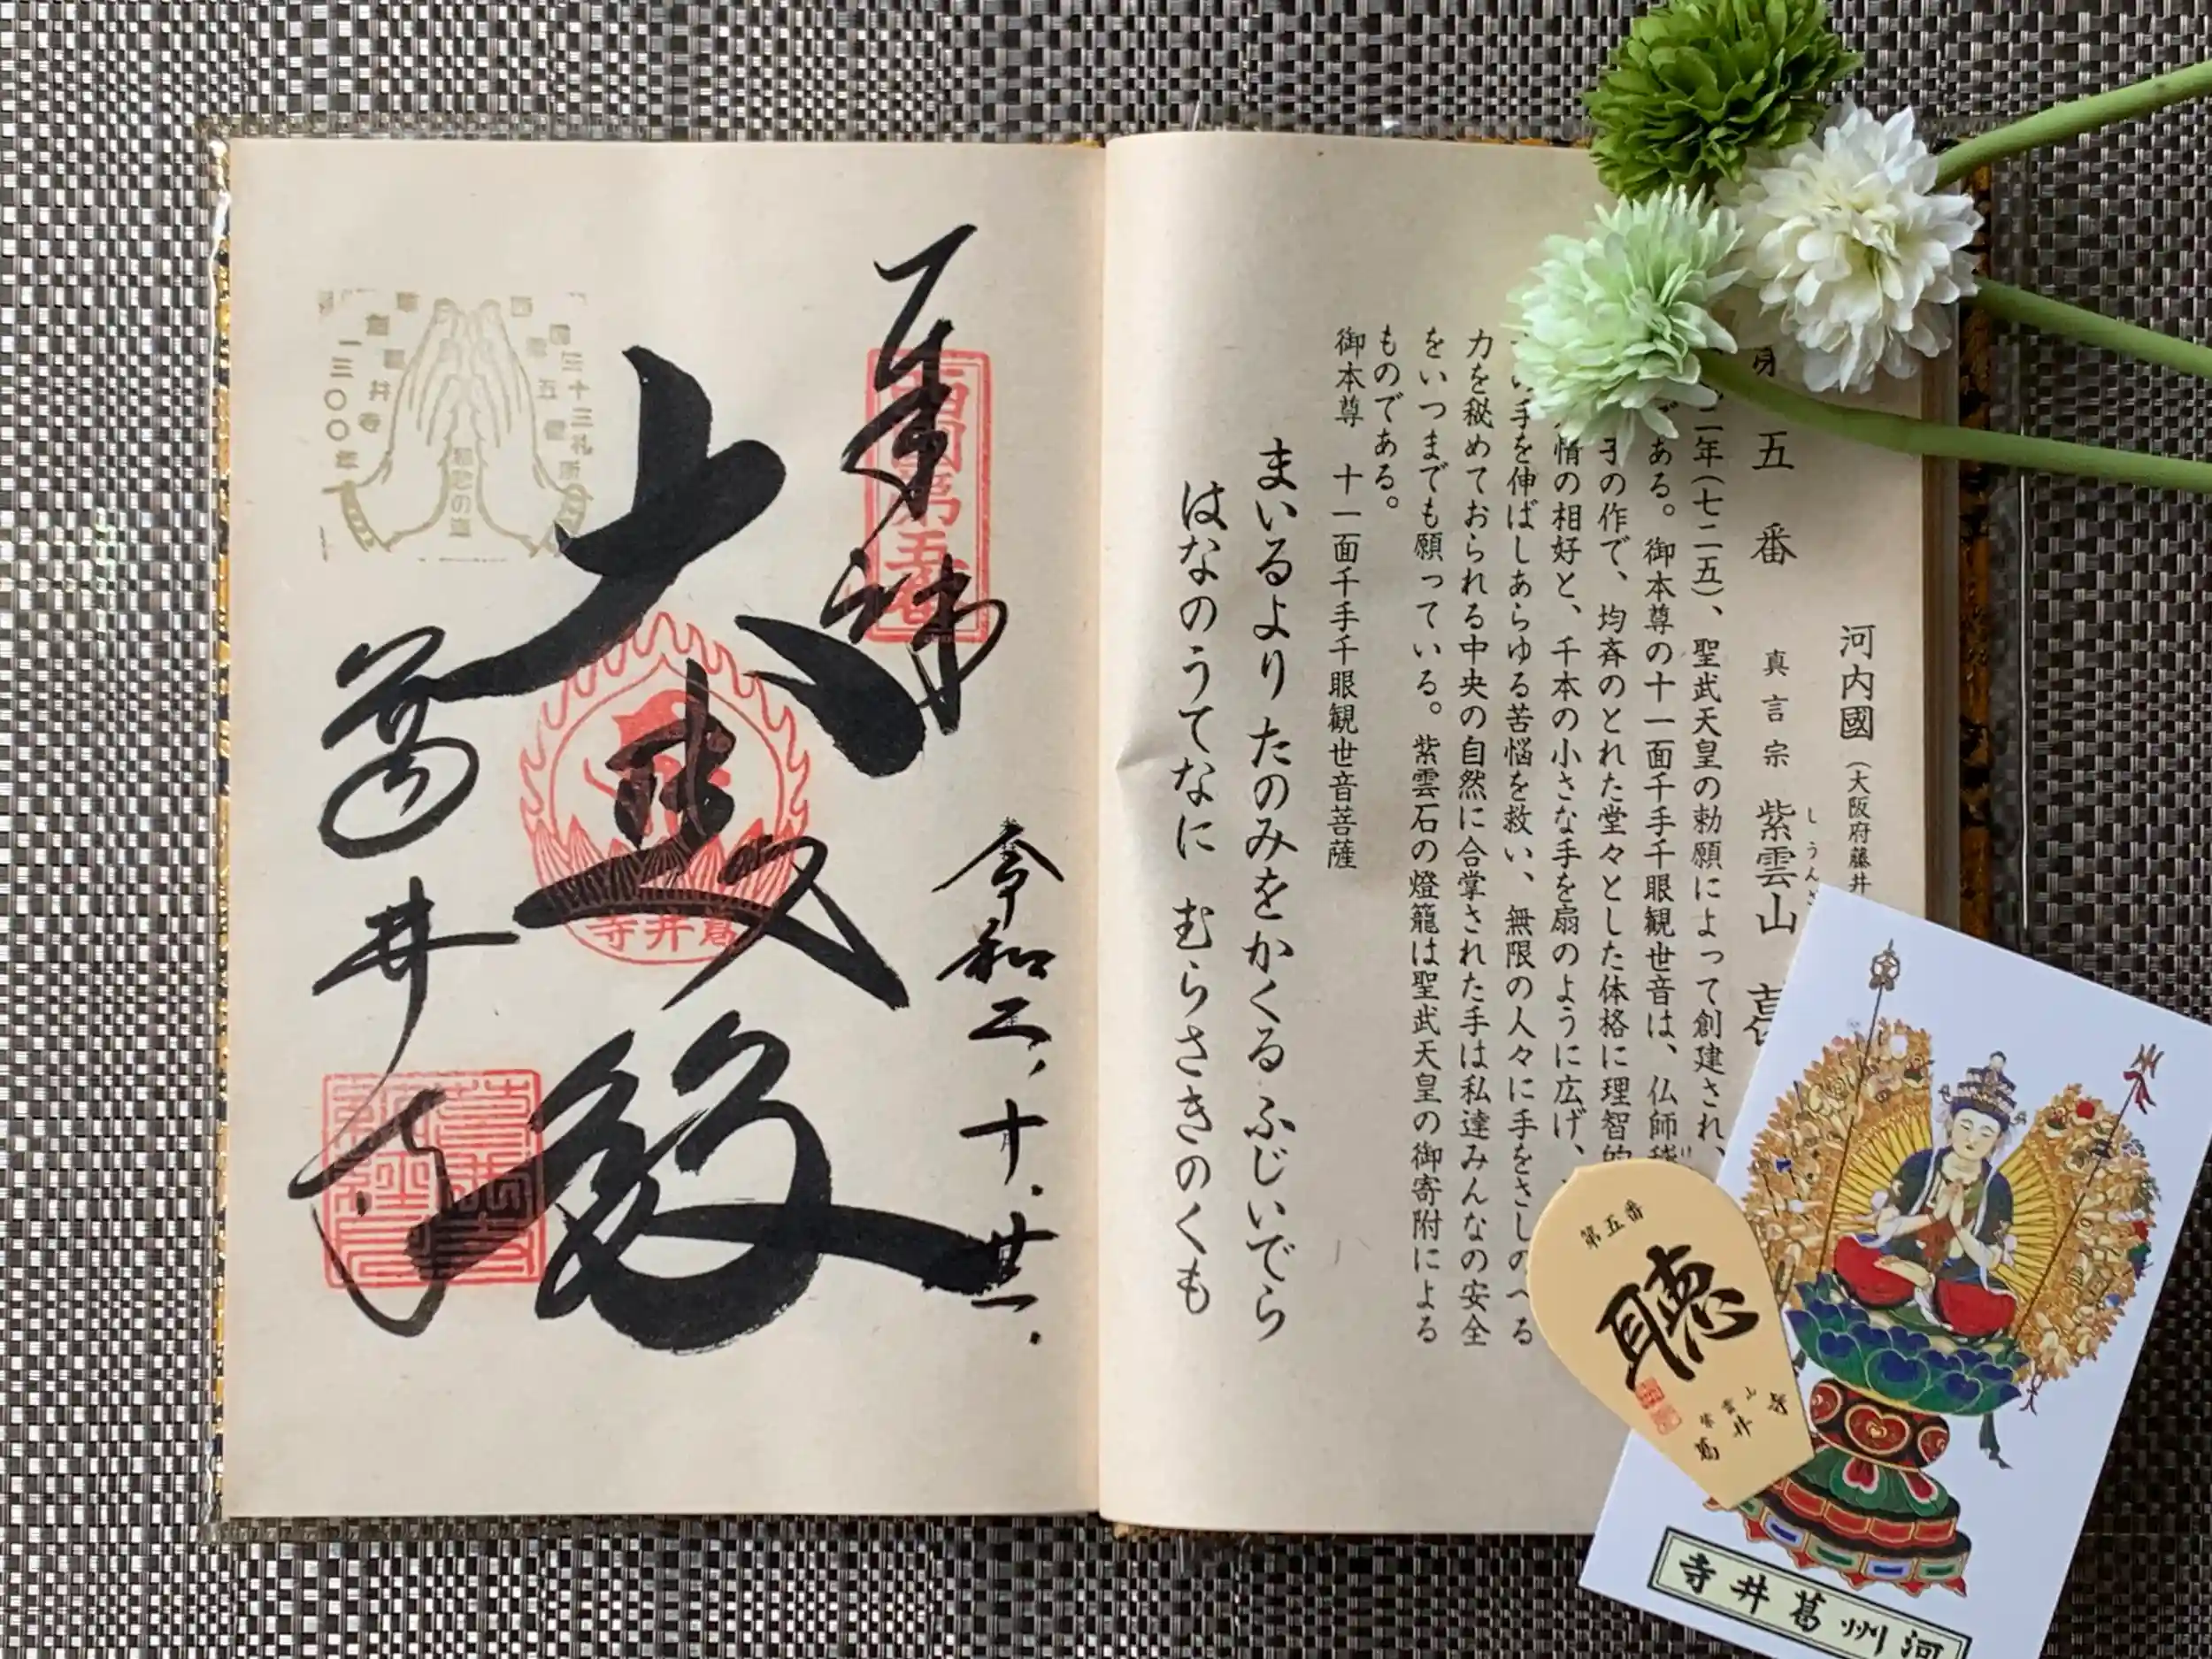 河内國(大阪府藤井
五番 真言宗 紫雲山 葛
しうんざ
二年(七二五)、聖武天皇の勅願によって創建され、
ある。御本尊の十一面千手千眼観世音は、仏師稽
の作で、均斉のとれた堂々とした体格に理智的
情の相好と、千本の小さな手を扇のように広げ、
の手を伸ばしあらゆる苦悩を救い、無限の人々に手をさしのべる
力を秘めておられる中央の自然に合掌された手は私達みんなの安全
をいつまでも願っている。紫雲石の燈籠は聖武天皇の御寄附による
ものである。
御本尊 十一面千手千眼観世音菩薩
まいるより たのみをかくる ふじいでら
はなのうてなに むらさきのくも
奉拝
西国第五番
令和二、十、廿一、
大悲殿
葛井寺
葛井寺
西国三十三札所
第五番
草創
葛井寺
一三〇〇年
慈悲の道
第五番
聴
紫雲山
葛井寺
河州葛井寺